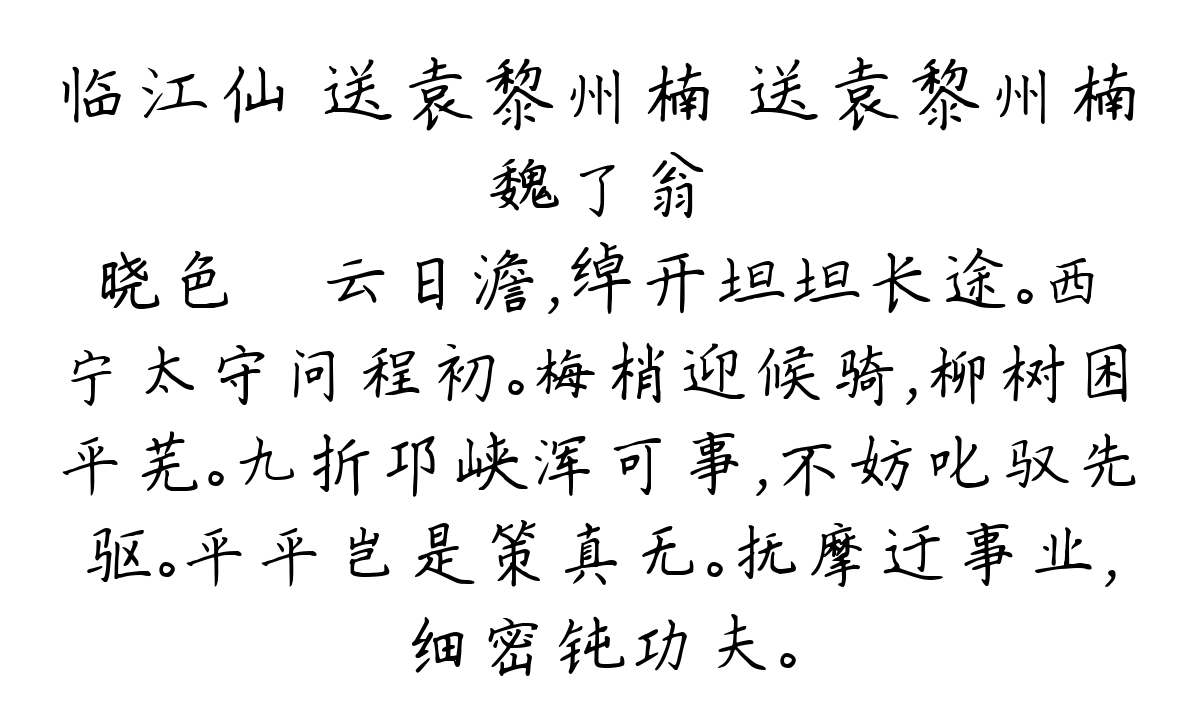 临江仙 送袁黎州楠 送袁黎州楠
魏了翁
晓色　云日澹,绰开坦坦长途。西
宁太守问程初。梅梢迎候骑,柳树困
平芜。九折邛峡浑可事,不妨叱驭先
驱。平平岂是策真无。抚摩迂事业,
细密钝功夫。